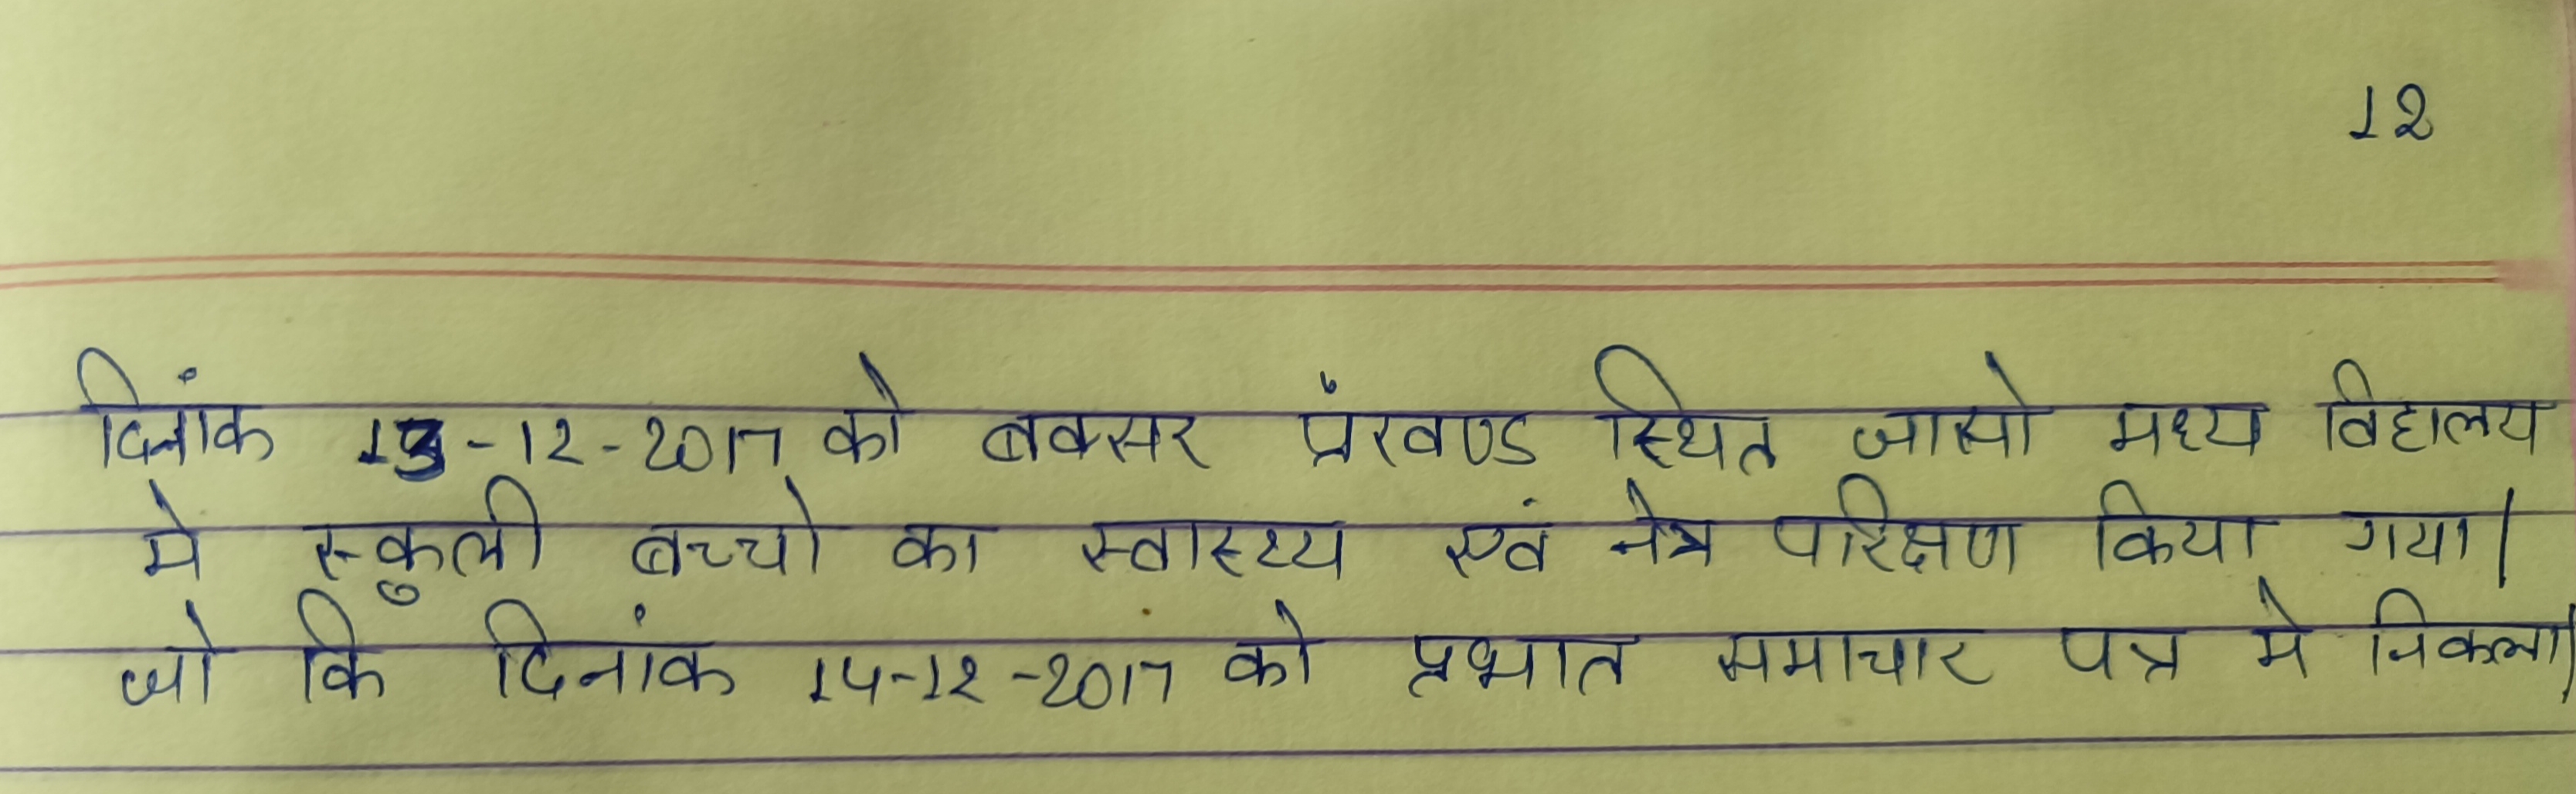 12
दिनांक 13-12-2017 को बक्सर प्रंखण्ड स्थित जासो मध्य विद्यालय
मे स्कुली बच्चो का स्वास्थ्य एवं नेत्र परिक्षण किया गया।
जो कि दिनांक 14-12-2017 को प्रभात समाचार पत्र मे निकला।